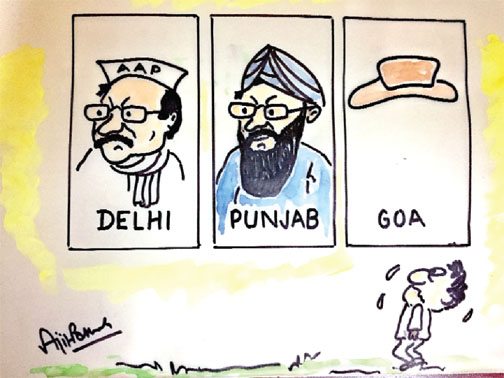 AAP
DELHI
PUNJAB
GOA